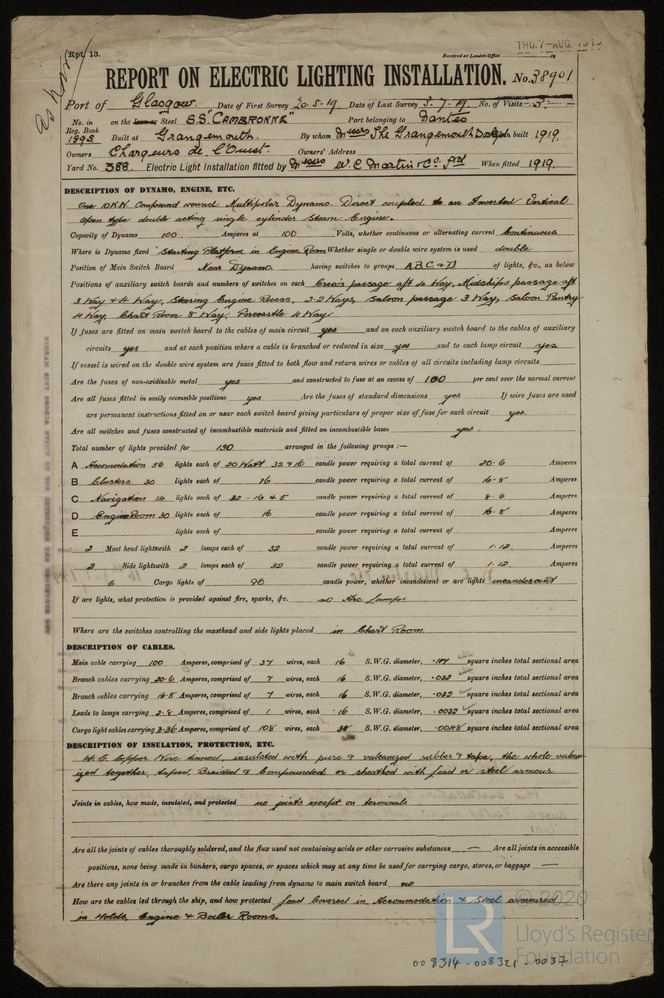 Rpt. 13.
Received at London Office
THU. 7-AUG. 1919
REPORT ON ELECTRIC LIGHTING INSTALLATION. No. 38901
Port of Glasgow. Date of First Survey 20-5-19 Date of Last Survey 3-7-19. No. of Visits 3
No. in Reg. Book 1893 on the Steel S.S. "CAMBRONNE" Port belonging to Nantes
Built at Grangemouth. By whom Messrs The Grangemouth Dockyd When built 1919.
Owners Chargeurs de l'Ouest. Owners' Address
Yard No. 388. Electric Light Installation fitted by Messrs W C Martin & Co. Ltd When fitted 1919.
DESCRIPTION OF DYNAMO, ENGINE, ETC.
One 10KW Compound wound Multipolar Dynamo. Direct coupled to an Inverted Vertical
open type double acting single cylinder Steam Engine.
Capacity of Dynamo 100 Amperes at 100 Volts, whether continuous or alternating current Continuous
Where is Dynamo fixed Starting Platform in Engine Room Whether single or double wire system is used double
Position of Main Switch Board Near Dynamo. having switches to groups A B C & D of lights, &c., as below
Positions of auxiliary switch boards and numbers of switches on each Crew's passage aft 4 Way, Midships passage aft
3 Way & 4 Way, Steering Engine Recess, 2-2 Ways, Saloon passage 3 Way, Saloon Pantry
4 Way, Chart Room 8 Way, Forecastle 4 Way
If fuses are fitted on main switch board to the cables of main circuit yes and on each auxiliary switch board to the cables of auxiliary
circuits yes and at each position where a cable is branched or reduced in size yes and to each lamp circuit yes
If vessel is wired on the double wire system are fuses fitted to both flow and return wires or cables of all circuits including lamp circuits
Are the fuses of non-oxidizable metal yes and constructed to fuse at an excess of 100 per cent over the normal current
Are all fuses fitted in easily accessible positions yes Are the fuses of standard dimensions yes If wire fuses are used
are permanent instructions fitted on or near each switch board giving particulars of proper size of fuse for each circuit yes.
Are all switches and fuses constructed of incombustible materials and fitted on incombustible bases yes.
Total number of lights provided for 130 arranged in the following groups :—
A Accomodation 56 lights each of 20 Watt 32 & 16 candle power requiring a total current of 20.6 Amperes
B Clusters 30 lights each of 16 candle power requiring a total current of 16.8 Amperes
C Navigation 14 lights each of 32 - 16 & 5 candle power requiring a total current of 8.6 Amperes
D Engine Room 30 lights each of 16 candle power requiring a total current of 16.8 Amperes
E lights each of candle power requiring a total current of Amperes
2 Mast head lights with 2 lamps each of 32 candle power requiring a total current of 1.12. Amperes
2 Side lights with 2 lamps each of 32 candle power requiring a total current of 1.12. Amperes
6 Cargo lights of 96 candle power, whether incandescent or arc lights incandescent
If arc lights, what protection is provided against fire, sparks, &c. no Arc Lamps
Where are the switches controlling the masthead and side lights placed in Chart Room
DESCRIPTION OF CABLES.
Main cable carrying 100 Amperes, comprised of 37 wires, each 16 S.W.G. diameter, .117 square inches total sectional area
Branch cables carrying 20.6 Amperes, comprised of 7 wires, each 16 S.W.G. diameter, .022 square inches total sectional area
Branch cables carrying 16.8 Amperes, comprised of 7 wires, each 16 S.W.G. diameter, .022 square inches total sectional area
Leads to lamps carrying 2.8 Amperes, comprised of 1 wires, each 16 S.W.G. diameter, .0032 square inches total sectional area
Cargo light cables carrying 3.36 Amperes, comprised of 108 wires, each 38 S.W.G. diameter, .0048 square inches total sectional area
DESCRIPTION OF INSULATION, PROTECTION, ETC.
H.C. Copper Wire tinned, insulated with pure & vulcanized rubber & tape, the whole vulcan-
ized together, taped, Braided & Compounded, or sheathed with lead or steel armour
Joints in cables, how made, insulated, and protected no joints except on terminals
Are all the joints of cables thoroughly soldered, and the flux used not containing acids or other corrosive substances — Are all joints in accessible
positions, none being made in bunkers, cargo spaces, or spaces which may at any time be used for carrying cargo, stores, or baggage —
Are there any joints in or branches from the cable leading from dynamo to main switch board no
How are the cables led through the ship, and how protected Lead Covered in Accommodation & Steel armoured
in Holds, Engine & Boiler Rooms.
© 2020
LR Lloyd's Register
Foundation
008314-008321-0037